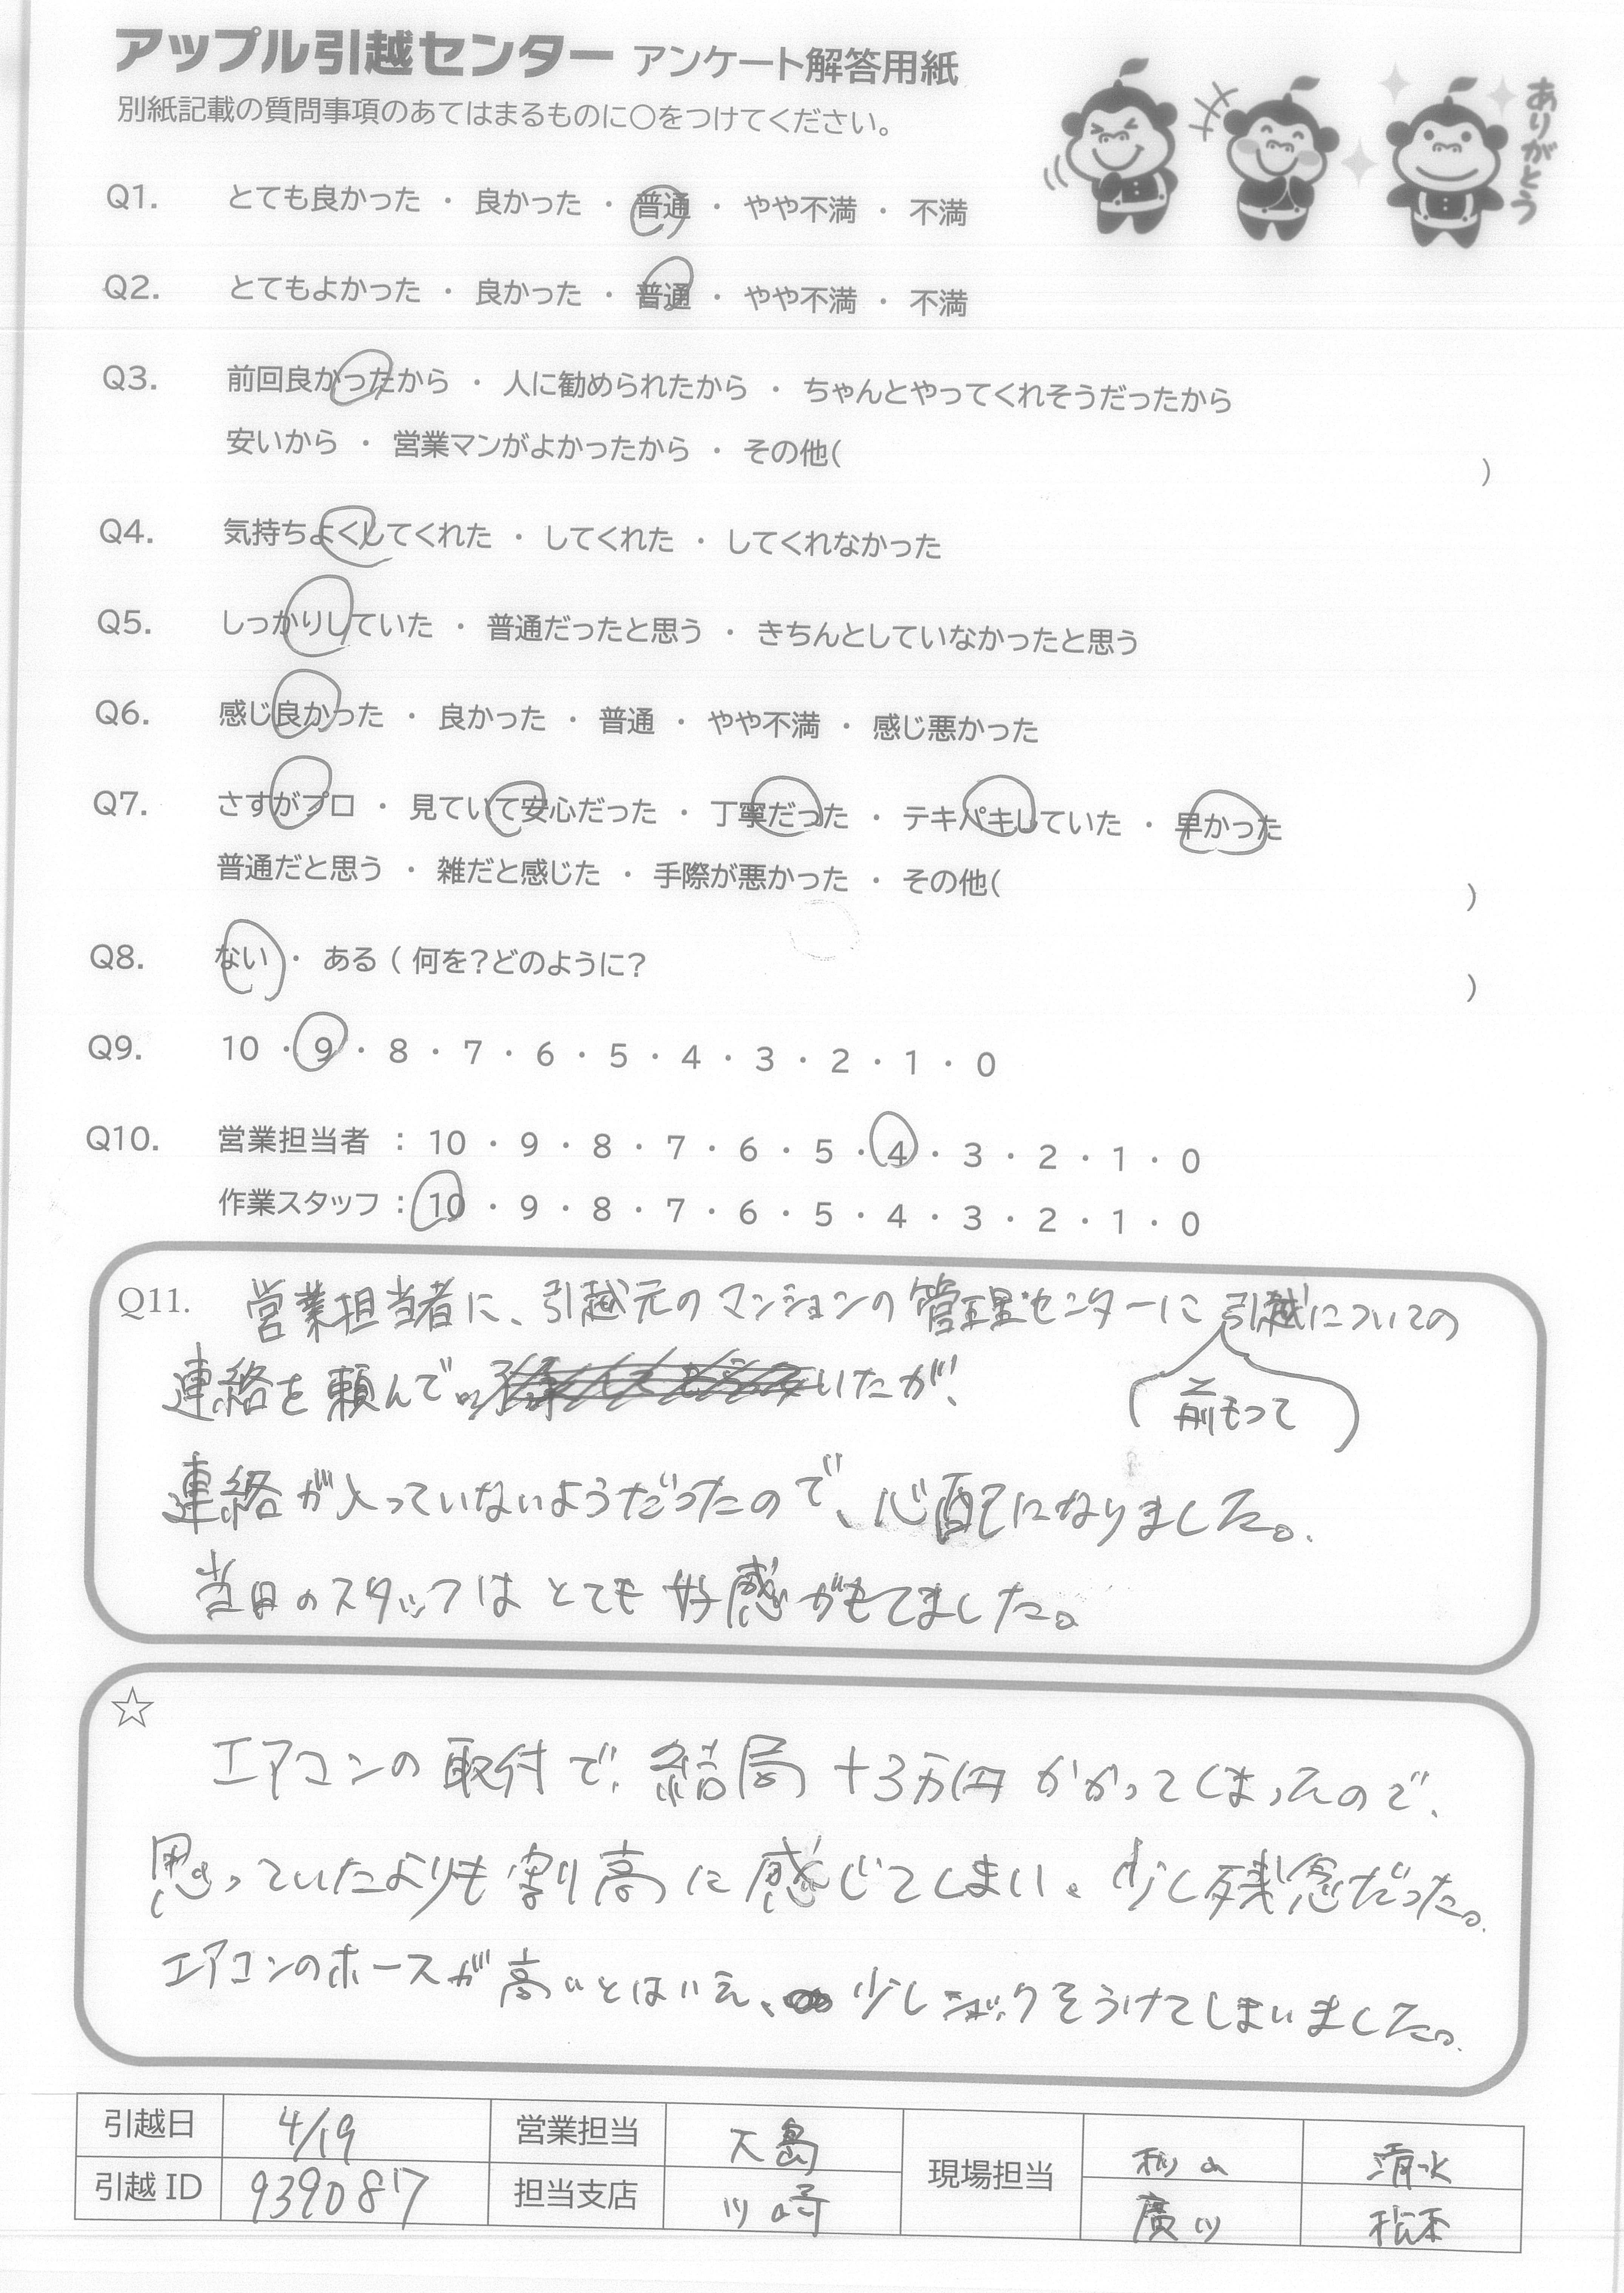 アップル引越センター アンケート解答用紙
別紙記載の質問事項のあてはまるものに○をつけてください。
ありがとう
Q1. とても良かった ・ 良かった ・ 普通 ・ やや不満 ・ 不満
Q2. とてもよかった ・ 良かった ・ 普通 ・ やや不満 ・ 不満
Q3. 前回良かったから ・ 人に勧められたから ・ ちゃんとやってくれそうだったから
安いから ・ 営業マンがよかったから ・ その他( )
Q4. 気持ちよくしてくれた ・ してくれた ・ してくれなかった
Q5. しっかりしていた ・ 普通だったと思う ・ きちんとしていなかったと思う
Q6. 感じ良かった ・ 良かった ・ 普通 ・ やや不満 ・ 感じ悪かった
Q7. さすがプロ ・ 見ていて安心だった ・ 丁寧だった ・ テキパキしていた ・ 早かった
普通だと思う ・ 雑だと感じた ・ 手際が悪かった ・ その他( )
Q8. ない ・ ある ( 何を?どのように? )
Q9. 10 ・ 9 ・ 8 ・ 7 ・ 6 ・ 5 ・ 4 ・ 3 ・ 2 ・ 1 ・ 0
Q10. 営業担当者 : 10 ・ 9 ・ 8 ・ 7 ・ 6 ・ 5 ・ 4 ・ 3 ・ 2 ・ 1 ・ 0
作業スタッフ : 10 ・ 9 ・ 8 ・ 7 ・ 6 ・ 5 ・ 4 ・ 3 ・ 2 ・ 1 ・ 0
Q11. 営業担当者に、引越元のマンションの管理センターに引越についての
連絡を頼んでいたが、
(前もって)
連絡が入っていないようだったので、心配になりました。
当日のスタッフはとても好感がもてました。
☆
エアコンの取付で、結局+3万円かかってしまったので、
思っていたよりも割高に感じてしまい、少し残念だった。
エアコンのホースが高いとはいえ、少しショックをうけてしまいました。
引越日 4/19 営業担当 大島 現場担当 秋山 清水
引越ID 9390817 担当支店 川崎 廣川 松本